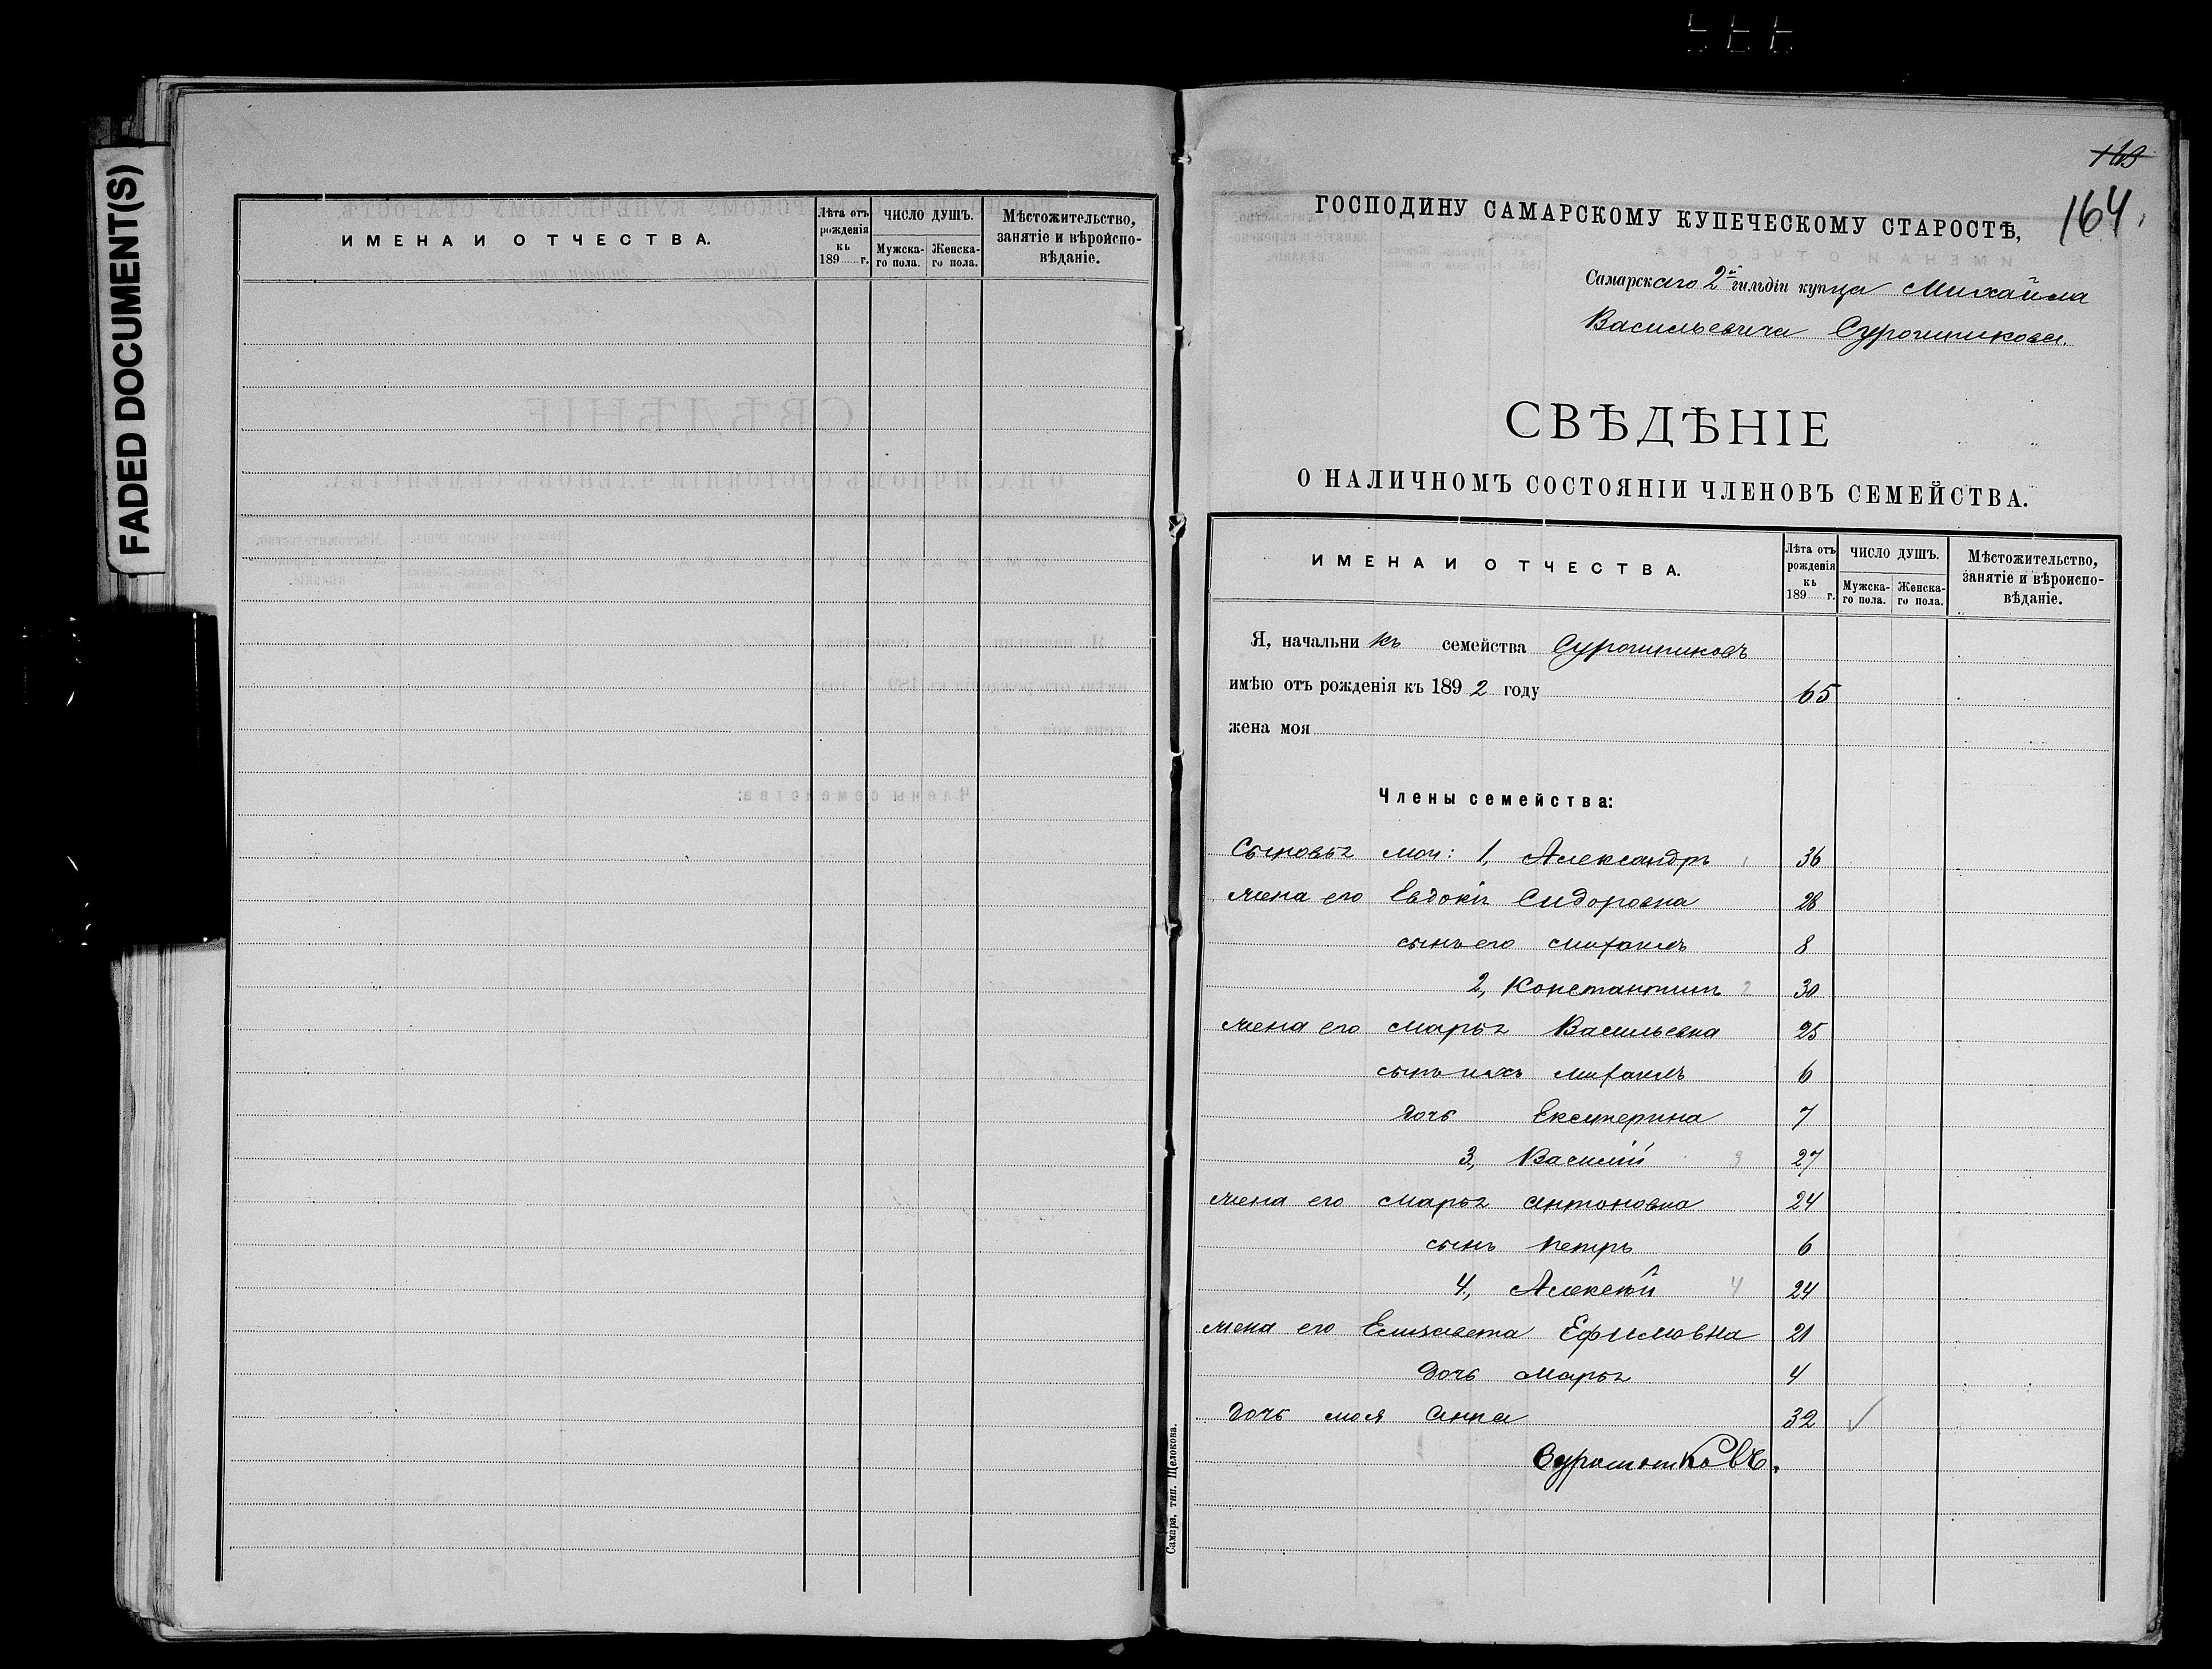 FADED DOCUMENT(S)
ИМЕНА И ОТЧЕСТВА.
Лѣта отъ рожденія къ 189 г.
ЧИСЛО ДУШЪ.
Мужска-го пола.
Женска-го пола.
Мѣстожительство, занятіе и вѣроиспо-вѣданіе.
163
164.
ГОСПОДИНУ САМАРСКОМУ КУПЕЧЕСКОМУ СТАРОСТѢ,
Самарскаго 2й гильдіи купца Михаила
Васильевича Сурошникова.
СВѢДѢНІЕ
О НАЛИЧНОМЪ СОСТОЯНІИ ЧЛЕНОВЪ СЕМЕЙСТВА.
ИМЕНА И ОТЧЕСТВА.
Лѣта отъ рожденія къ 189 г.
ЧИСЛО ДУШЪ.
Мужска-го пола.
Женска-го пола.
Мѣстожительство, занятіе и вѣроиспо-вѣданіе.
Я, начальникъ семейства Сурошниковъ
имѣю отъ рожденія къ 1892 году 65
жена моя
Члены семейства:
Сыновья мои: 1, Александръ 36
жена его Евдокія Сидоровна 28
сынъ его Михаилъ 8
2, Константинъ 2 30
жена его Марья Васильевна 25
сынъ ихъ Михаилъ 6
дочь Екатерина 7
3, Василій 3 27
жена его Марья Антоновна 24
сынъ Петръ 6
4, Алексѣй 4 24
жена его Елизавета Ефимовна 21
дочь Марья 4
дочь моя Анна 32 ✓
Сурошниковъ.
Самара, тип. Щелокова.